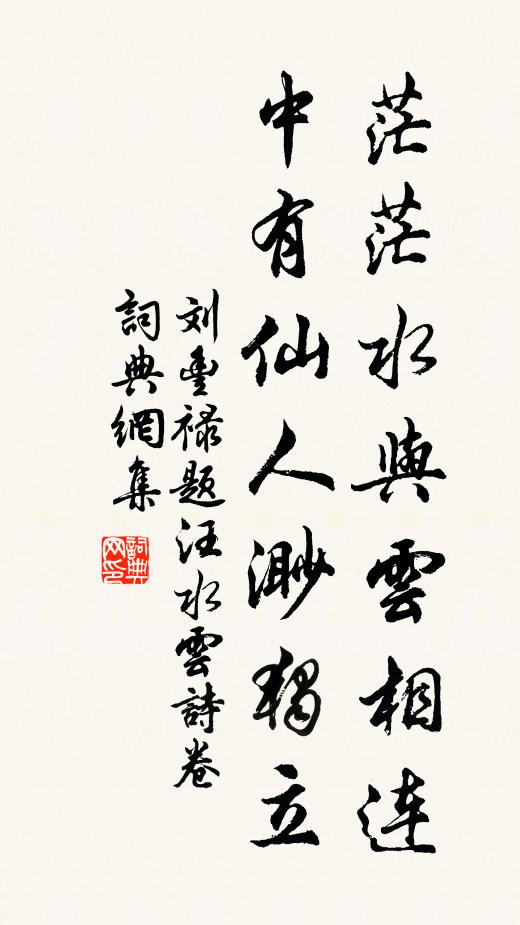 茫茫水與雲相連
中有仙人渺獨立
刘豐禄題汪水雲詩卷
詞典網集
詞典
网印